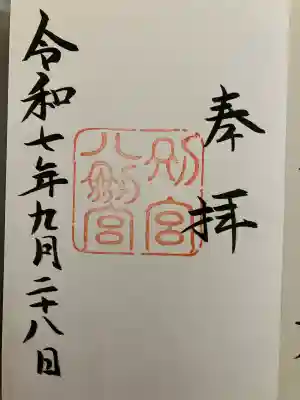 奉拝
別宮
八剱宮
令和七年九月二十八日